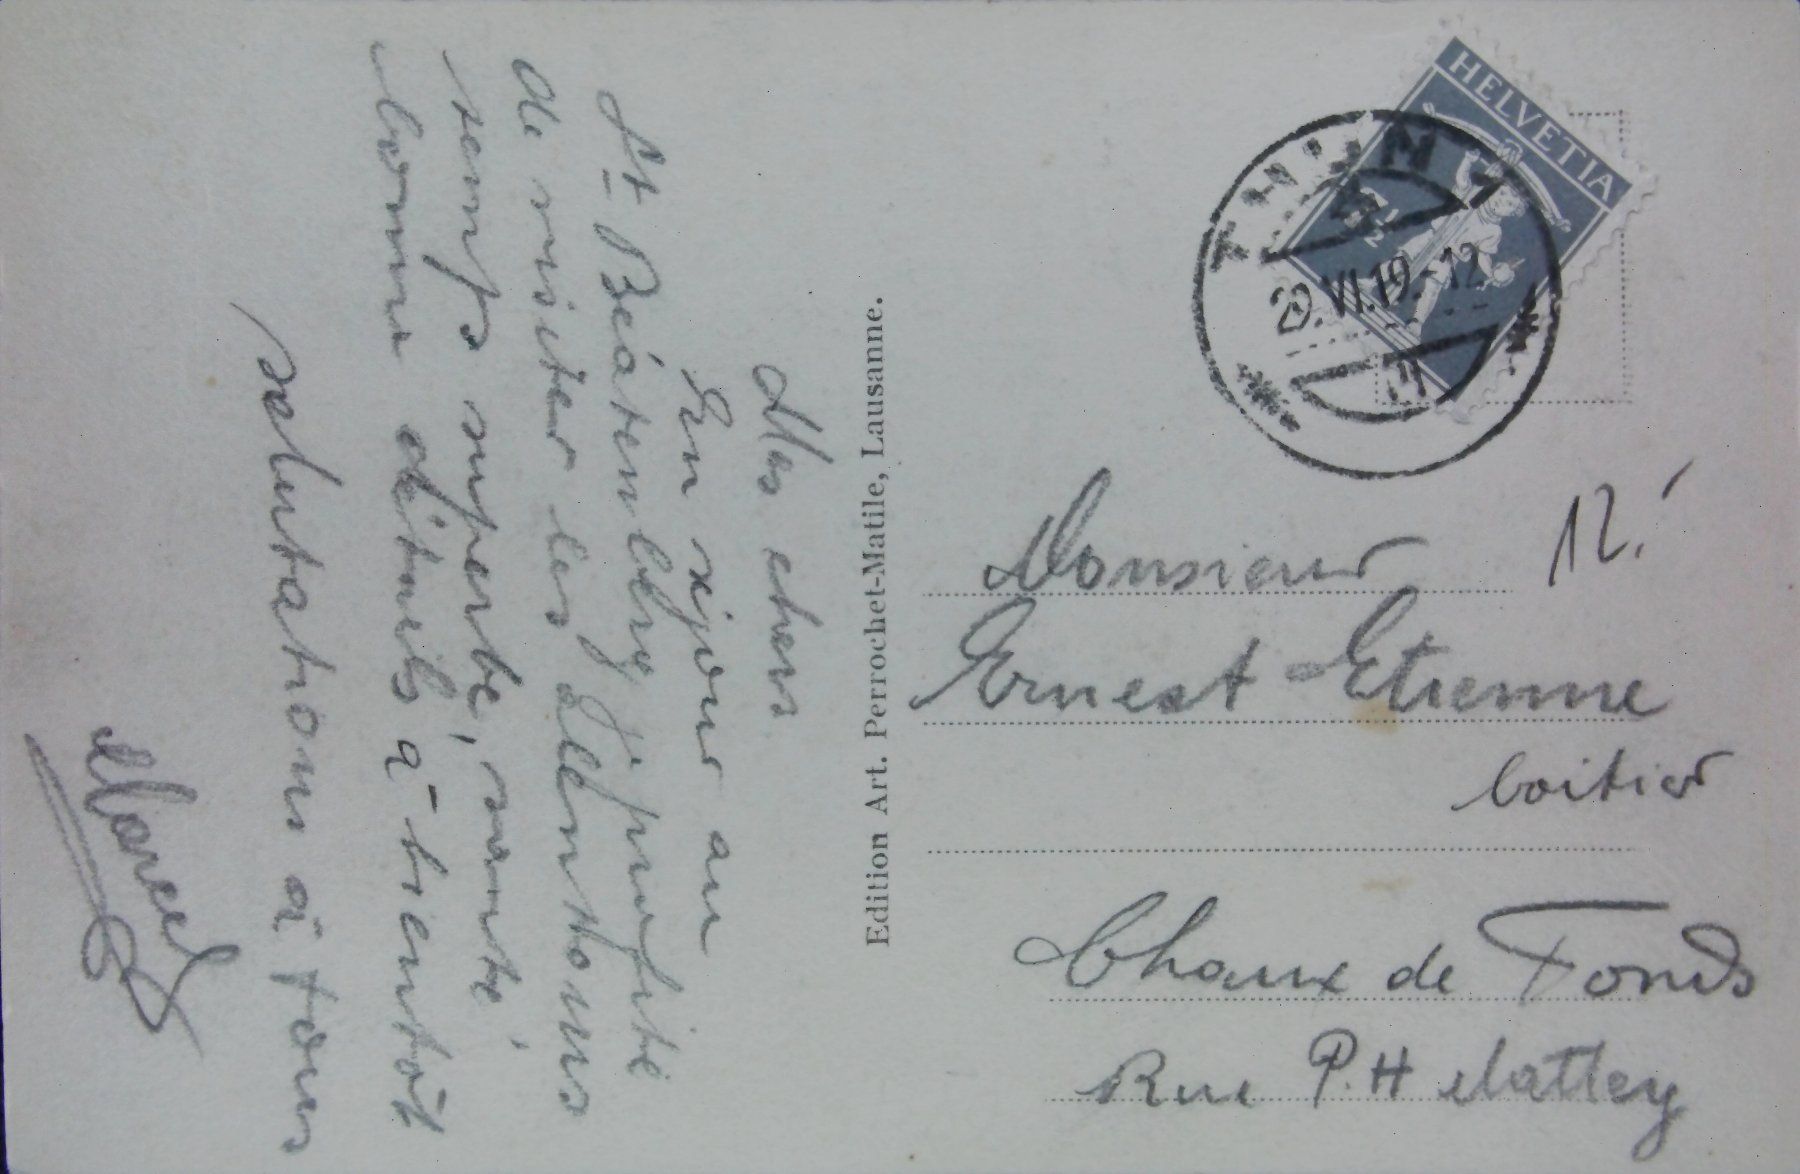 Mes chers
En sejour au
St Béatenberg je profite
de visiter les alentours
temps superbe, santé
bonne détails à bientôt
salutations à tous
Marcel
Edition Art. Perrochet-Matile, Lausanne.
HELVETIA
7½
THUN 1
29.VI.19.-12
Monsieur
12.
Ernest Etienne
boitier
Chaux de Fonds
Rue P.H Matley